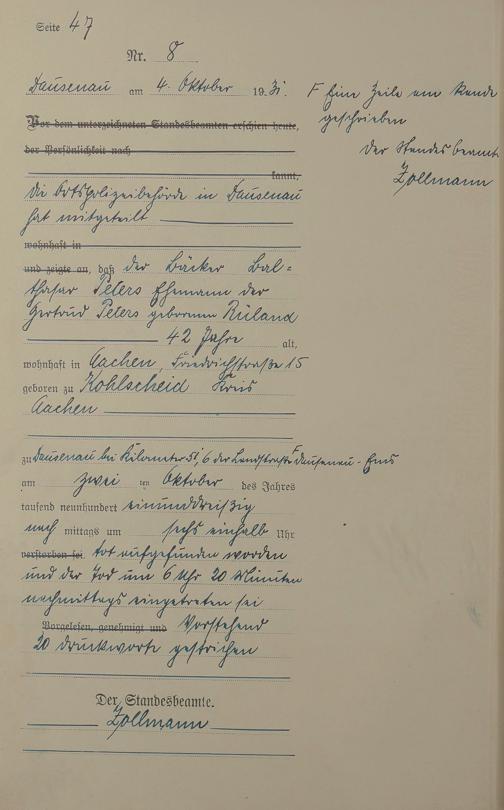 Seite 47
Nr. 8
Dausenau am 4. Oktober 1931.
Vor dem unterzeichneten Standesbeamten erschien heute,
der Persönlichkeit nach
kannt,
die Ortspolizeibehörde in Dausenau
hat mitgeteilt
wohnhaft in
und zeigte an, daß der Bäcker Bal=
thasar Peters Ehemann der
Gertrud Peters geborenen Rüland
42 Jahre alt,
wohnhaft in Aachen, Friedrichstraße 15
geboren zu Kohlscheid Kreis
Aachen
zu Dausenau bei Kilometer 51,6 der Landstraße F Dausenau - Ems
am zwei ten Oktober des Jahres
tausend neunhundert einunddreißig
nach mittags um sechs einhalb Uhr
verstorben sei. tot aufgefunden worden
und der Tod um 6 Uhr 20 Minuten
nachmittags eingetreten sei
Vorgelesen, genehmigt und Vorstehend
20 Druckworte gestrichen
Der Standesbeamte.
Zollmann
F Eine Zeile am Rande
geschrieben
Der Standesbeamte
Zollmann